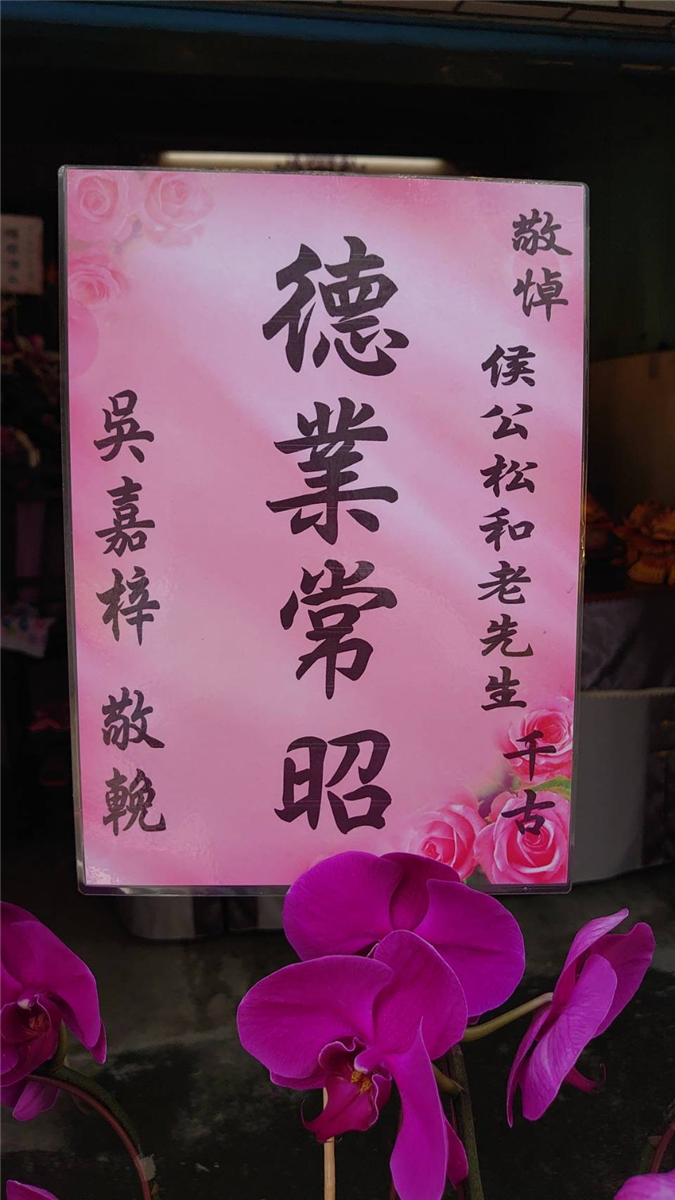 敬悼
侯公松和老先生
千古
德業常昭
吳嘉梓 敬輓